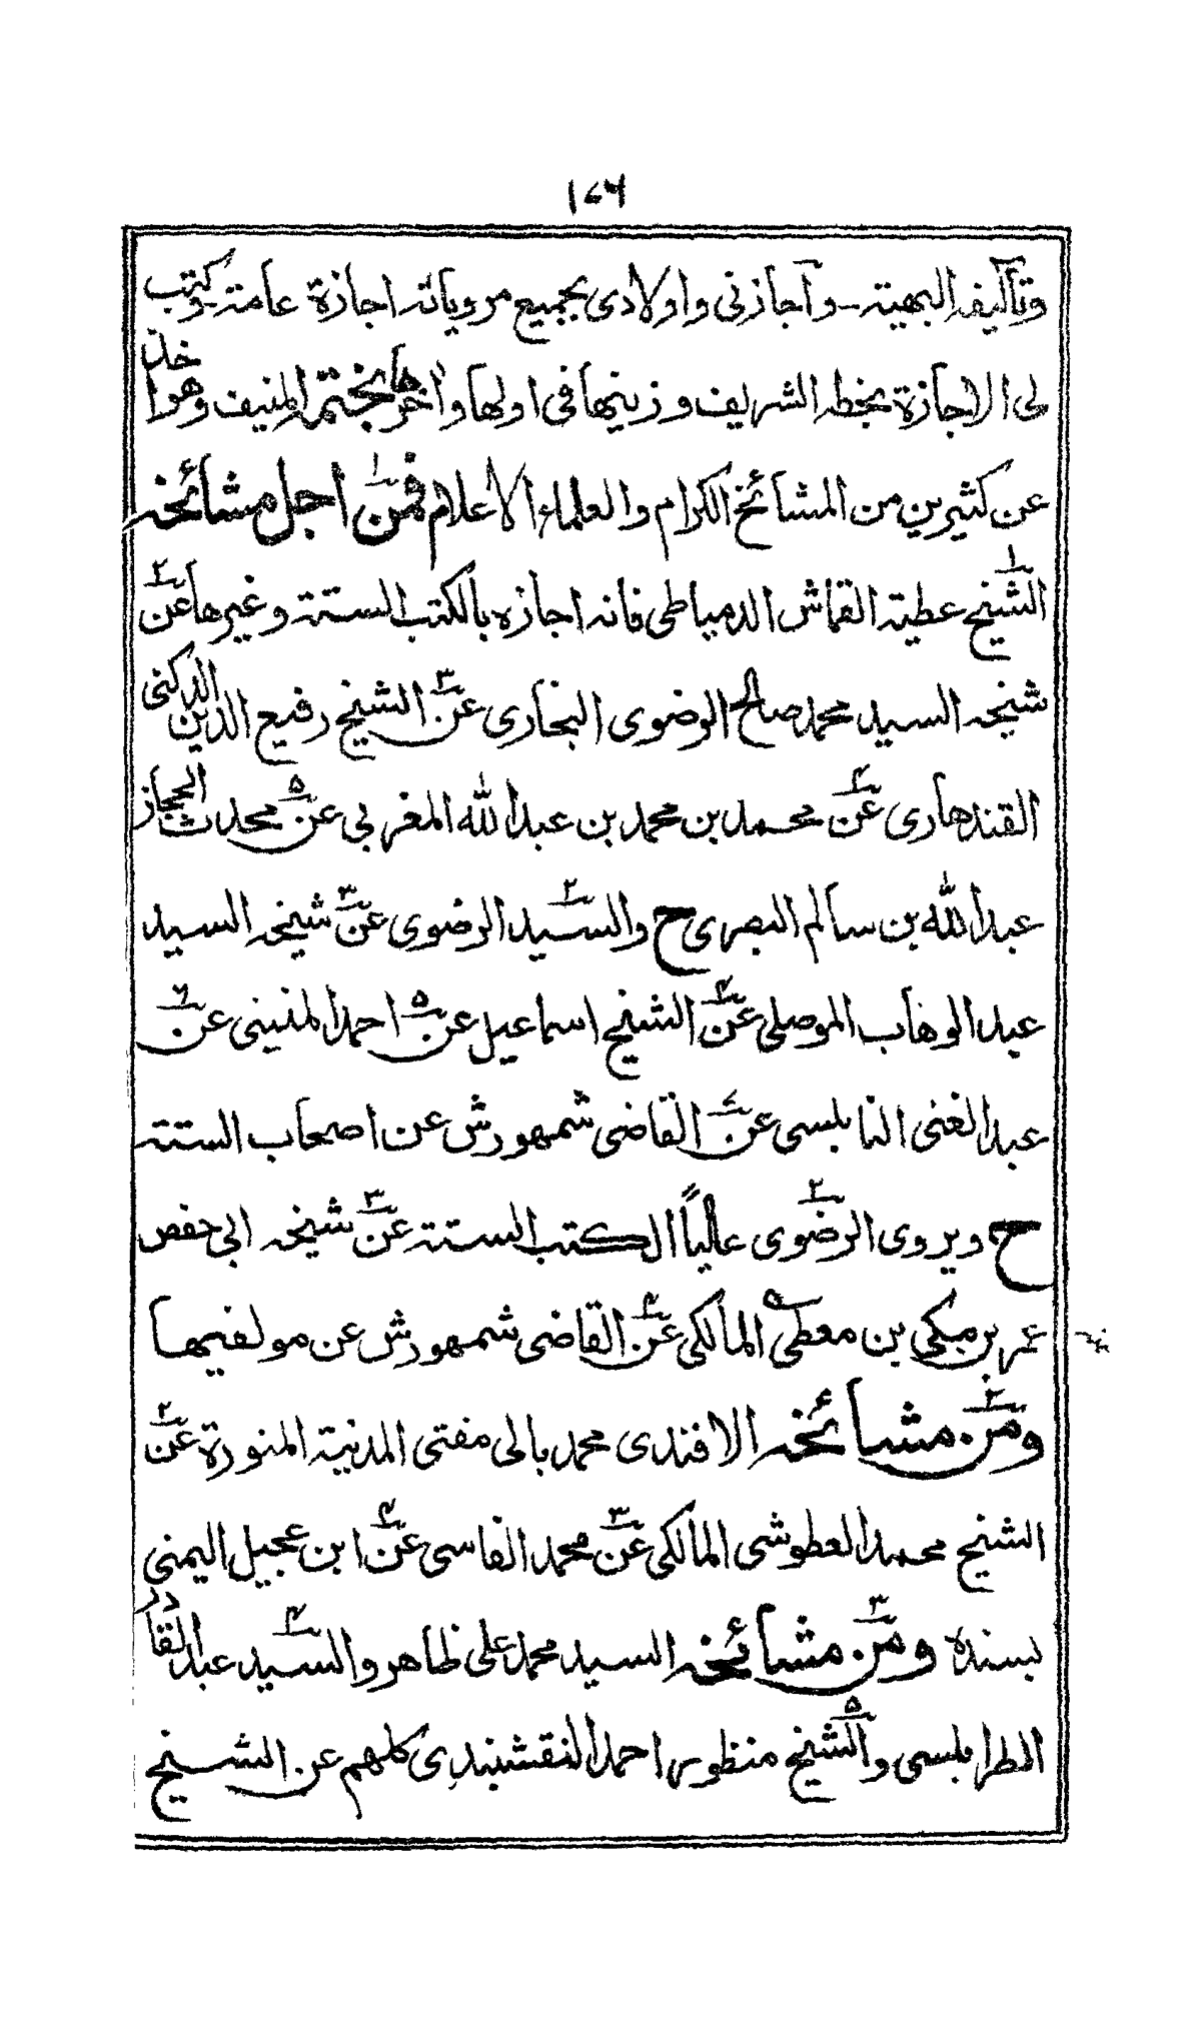 ١٧٦
وتآليفه البهية ـ وأجازني واولادى بجميع مروياته اجازة عامة ـ وكتب
لى الاجازة بخطه الشريف وزينها فى اولها وآخرها بختمه المنيف وهو اخذ
عن كثيرين من المشائخ الكرام والعلماء الاعلام فمن اجل مشائخه
الشيخ عطية القماش الدمياطى فانه اجازه بالكتب الستة وغيرها عن
شيخه السيد محمد صالح الرضوى البخارى عن الشيخ رفيع الدين الدكنى
القندهارى عن محمد بن محمد بن عبد الله المغربى عن محدث الحجاز
عبد الله بن سالم البصرى ح والسيد الرضوى عن شيخه السيد
عبد الوهاب الموصلى عن الشيخ اسماعيل عن احمد المنينى عن
عبد الغنى النابلسى عن القاضى شمهورش عن اصحاب الستة
ح ويروى الرضوى عالياً الكتب الستة عن شيخه ابى حفص
عمر بن مكي بن معطى المالكى عن القاضى شمهورش عن مولفيها
ومن مشائخه الافندى محمد بالى مفتى المدينة المنورة عن
الشيخ محمد العطوشى المالكى عن محمد الفاسى عن ابن عجيل اليمنى
بسنده ومن مشائخه السيد محمد على ظاهر والسيد عبد القادر
الطرابلسى والشيخ منظور احمد النقشبندى كلهم عن الشيخ